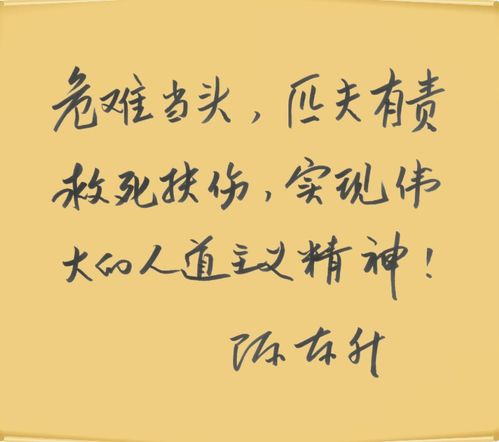 危难当头，匹夫有责
救死扶伤，实现伟
大的人道主义精神！
陈东升